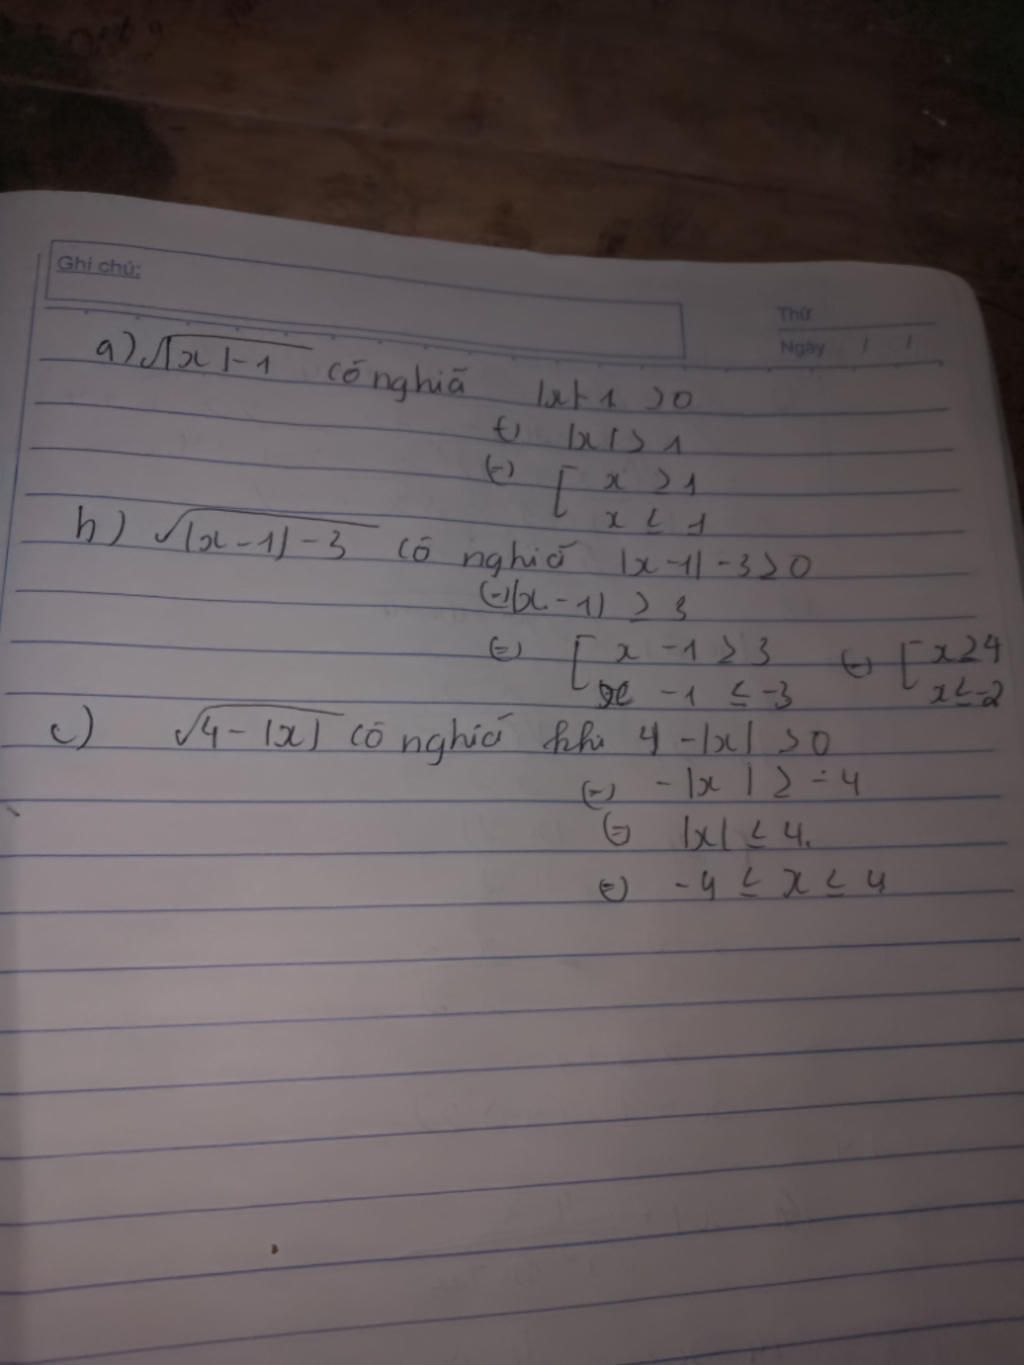 Ghi chú:
Thứ
Ngày / /
a) √|x|-1 có nghiã |x|-1 >0
(=) |x| > 1
(=) [ x > 1
x < 1
b) √|x-1|-3 có nghiã |x-1|-3≥0
(=)|x-1| ≥ 3
(=) [ x -1 ≥ 3 (=) [ x≥4
x -1 ≤ -3 x≤-2
c) √4-|x| có nghiã khi 4 -|x| >0
(=) -|x| ≥ -4
(=) |x| ≤ 4.
(=) -4 ≤ x ≤ 4